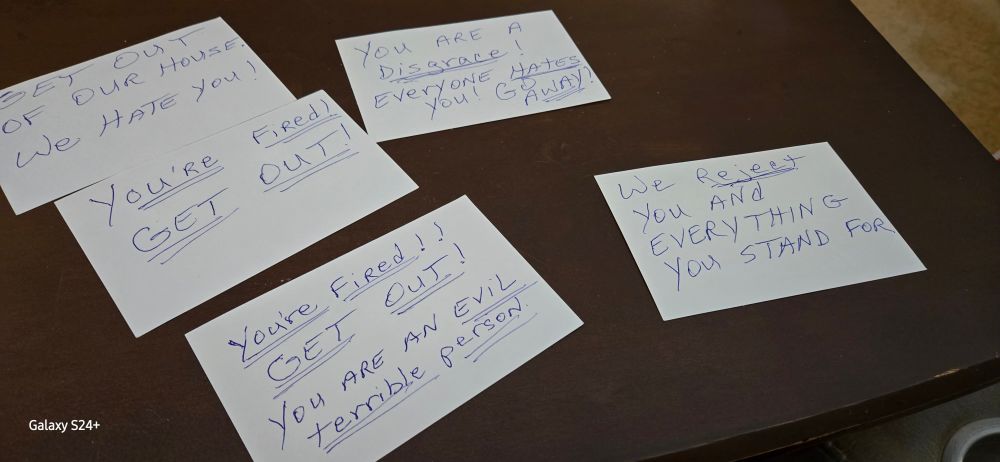 GET OUT
OF OUR HOUSE.
We HATE YOU!
YOU ARE A
Disgrace!
EVERYONE HATES
YOU! GO AWAY!
YOU'RE FIRED!
GET OUT!
WE Reject
YOU AND
EVERYTHING
YOU STAND FOR
You're FIRED!!
GET OUT!
YOU ARE AN EVIL
terrible person.
Galaxy S24+